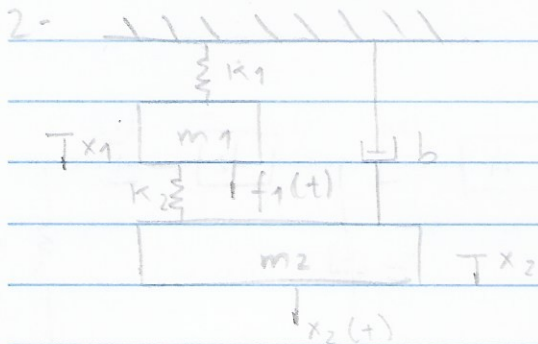 2-
k1
m1
x1
b
k2
f1(t)
m2
x2
x2(t)